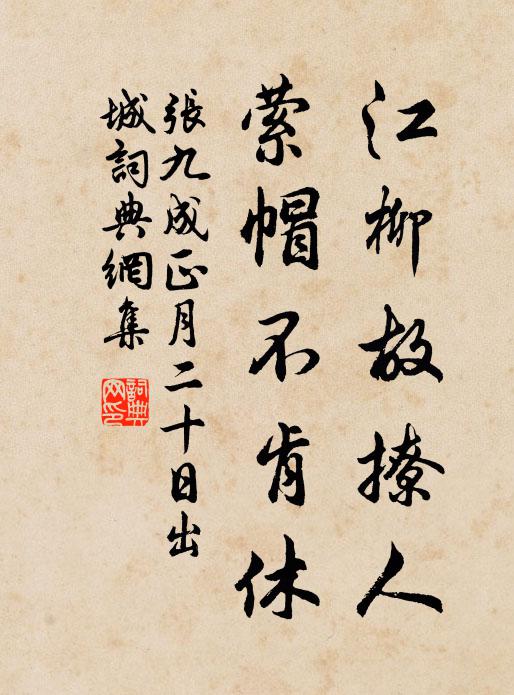 江柳故撩人
縈帽不肯休
張九成正月二十日出
城詞典網集
詞典
网印